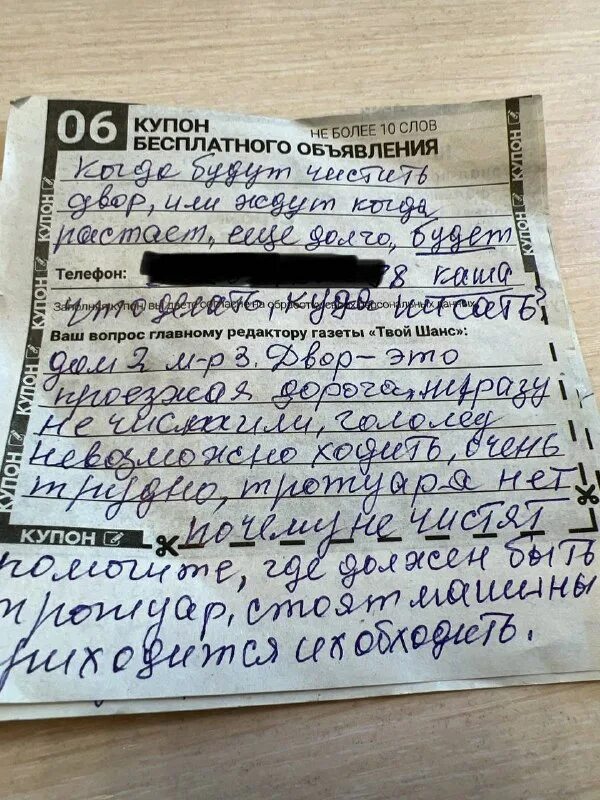 06 КУПОН НЕ БОЛЕЕ 10 СЛОВ
БЕСПЛАТНОГО ОБЪЯВЛЕНИЯ
когда будут чистить
двор, или ждут когда
растает, еще долго, будет
Телефон: 8 каша
Заполняя купон, вы даете согласие на обработку персональных данных
что делат, куда писать?
Ваш вопрос главному редактору газеты «Твой Шанс»:
дом 2 м-р 3. Двор - это
проезжая дорога, ни разу
не чистили, гололед
невозможно ходить, очень
трудно, тротуара нет
почему не чистят
помогите, где должен быть
тротуар, стоят машины
приходится их обходить.
КУПОН
КУПОН
КУПОН
КУПОН
КУПОН
КУПОН
КУПОН